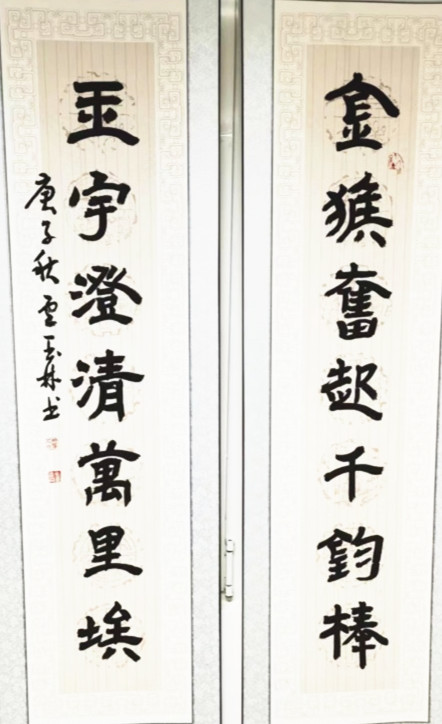 金猴奮起千鈞棒
玉宇澄清萬里埃
庚子秋雲玉林書